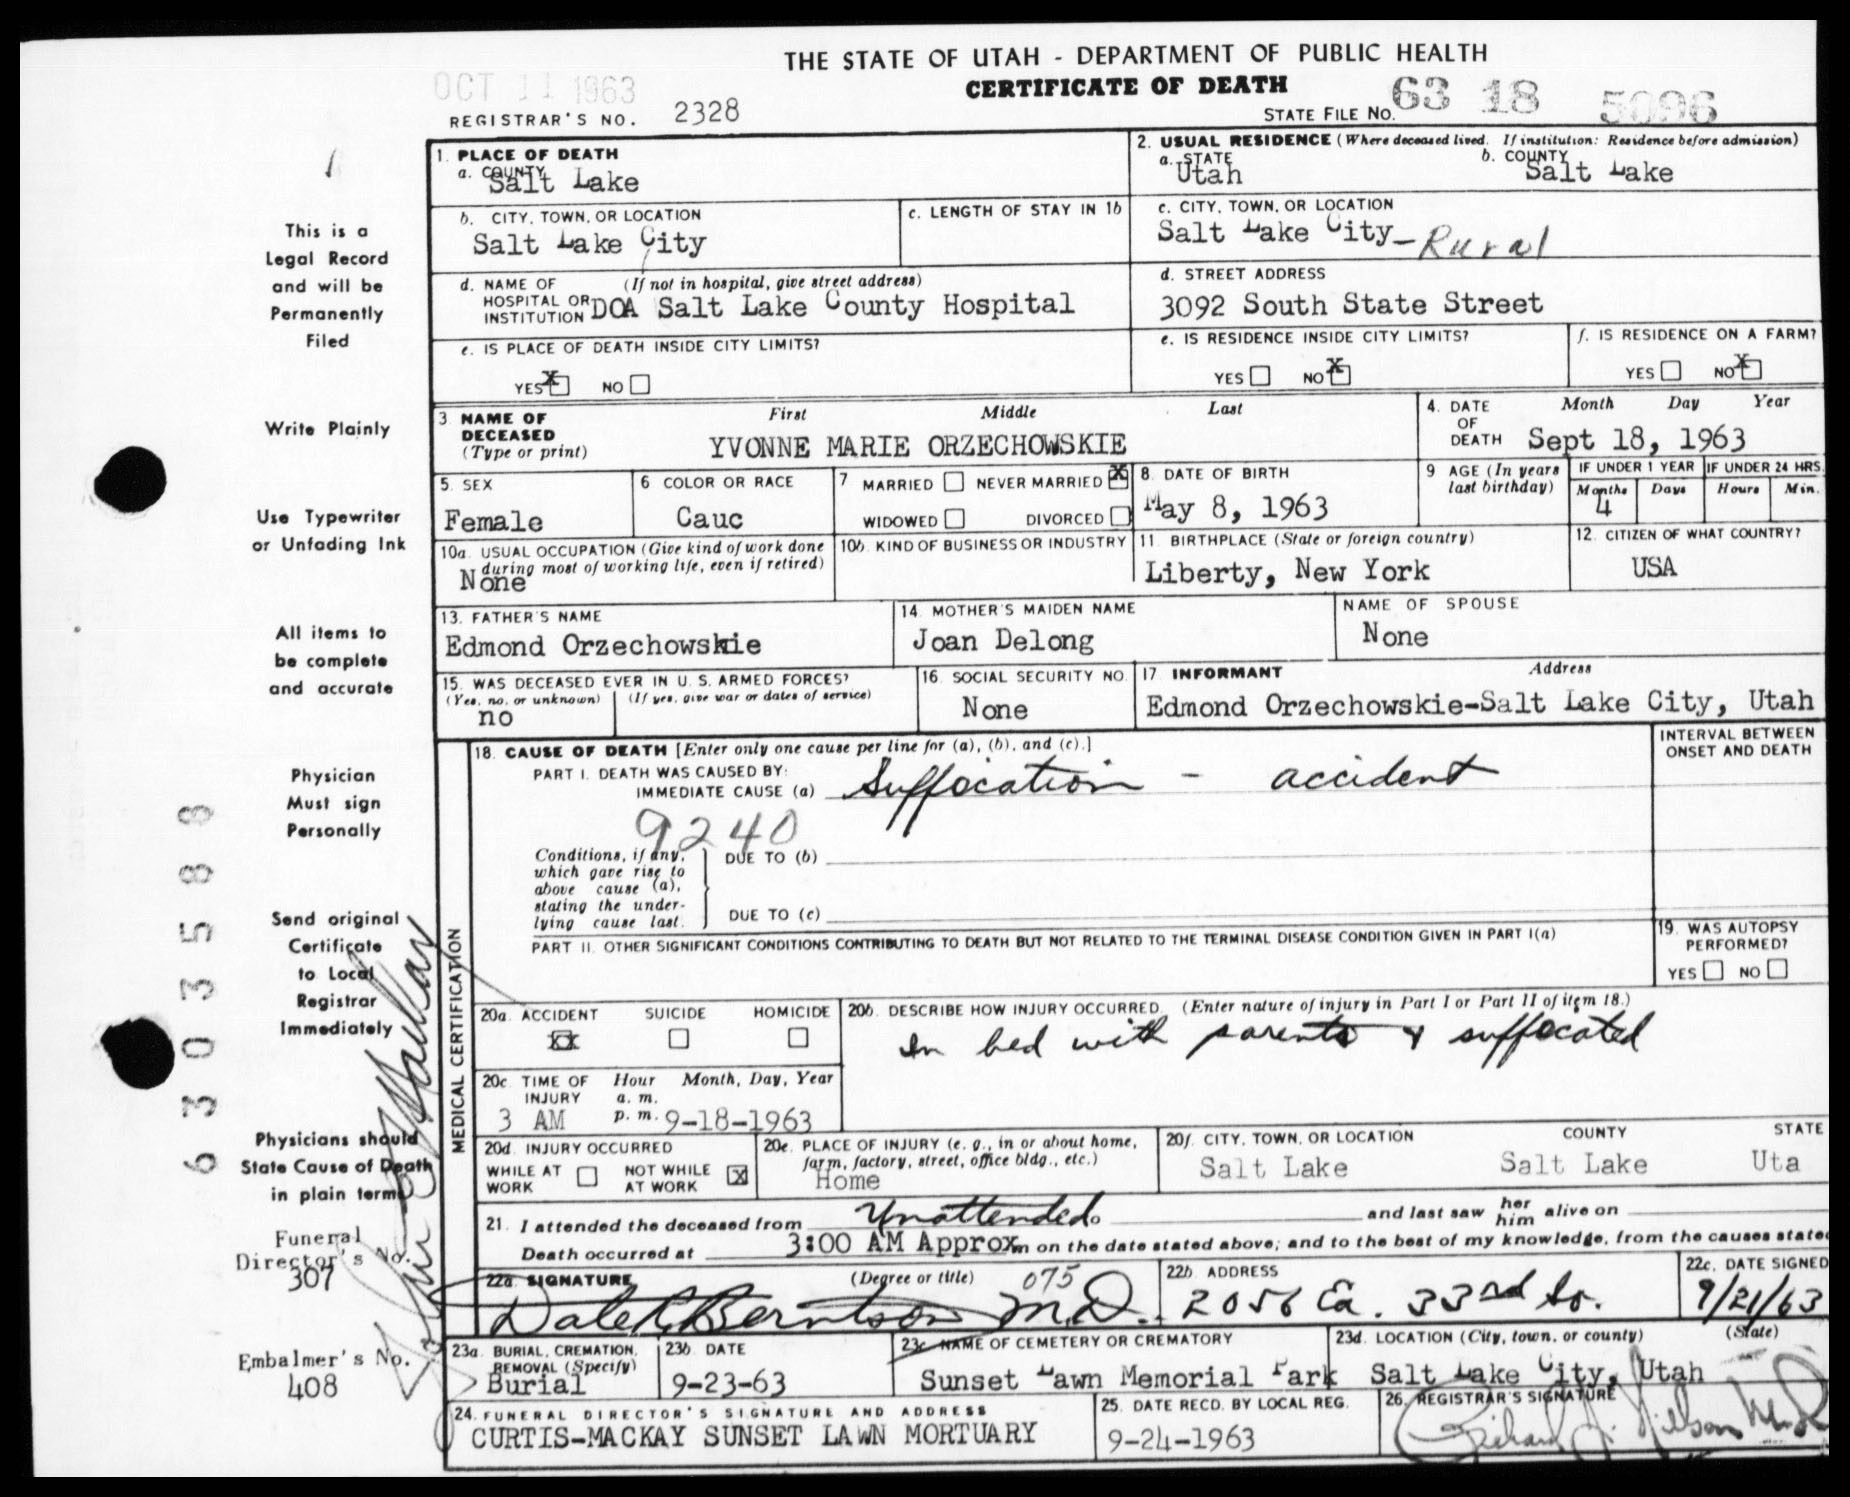 THE STATE OF UTAH - DEPARTMENT OF PUBLIC HEALTH
OCT 11 1963
CERTIFICATE OF DEATH
REGISTRAR'S NO. 2328
STATE FILE NO. 63 18 5096
1. PLACE OF DEATH
a. COUNTY
Salt Lake
2. USUAL RESIDENCE (Where deceased lived. If institution: Residence before admission)
a. STATE
Utah
b. COUNTY
Salt Lake
b. CITY, TOWN, OR LOCATION
Salt Lake City
c. LENGTH OF STAY IN 1b
c. CITY, TOWN, OR LOCATION
Salt Lake City - Rural
d. NAME OF HOSPITAL OR INSTITUTION
(If not in hospital, give street address)
DOA Salt Lake County Hospital
d. STREET ADDRESS
3092 South State Street
e. IS PLACE OF DEATH INSIDE CITY LIMITS?
YES X NO
e. IS RESIDENCE INSIDE CITY LIMITS?
YES NO X
f. IS RESIDENCE ON A FARM?
YES NO X
3 NAME OF DECEASED
(Type or print)
First Middle Last
YVONNE MARIE ORZECHOWSKIE
4. DATE OF DEATH
Month Day Year
Sept 18, 1963
5. SEX
Female
6 COLOR OR RACE
Cauc
7 MARRIED NEVER MARRIED X
WIDOWED DIVORCED
8. DATE OF BIRTH
May 8, 1963
9 AGE (In years last birthday)
IF UNDER 1 YEAR
Months Days
4
IF UNDER 24 HRS.
Hours Min.
10a. USUAL OCCUPATION (Give kind of work done during most of working life, even if retired)
None
10b. KIND OF BUSINESS OR INDUSTRY
11. BIRTHPLACE (State or foreign country)
Liberty, New York
12. CITIZEN OF WHAT COUNTRY?
USA
13. FATHER'S NAME
Edmond Orzechowskie
14. MOTHER'S MAIDEN NAME
Joan Delong
NAME OF SPOUSE
None
15. WAS DECEASED EVER IN U. S. ARMED FORCES?
(Yes, no, or unknown) (If yes, give war or dates of service)
no
16. SOCIAL SECURITY NO.
None
17 INFORMANT Address
Edmond Orzechowskie-Salt Lake City, Utah
MEDICAL CERTIFICATION
18. CAUSE OF DEATH [Enter only one cause per line for (a), (b), and (c).]
PART I. DEATH WAS CAUSED BY:
IMMEDIATE CAUSE (a) Suffocation - accident
9240
Conditions, if any, which gave rise to above cause (a), stating the underlying cause last.
DUE TO (b)
DUE TO (c)
INTERVAL BETWEEN ONSET AND DEATH
PART II. OTHER SIGNIFICANT CONDITIONS CONTRIBUTING TO DEATH BUT NOT RELATED TO THE TERMINAL DISEASE CONDITION GIVEN IN PART I(a)
19. WAS AUTOPSY PERFORMED?
YES NO
20a. ACCIDENT SUICIDE HOMICIDE
20b. DESCRIBE HOW INJURY OCCURRED. (Enter nature of injury in Part I or Part II of item 18.)
In bed with parents & suffocated
20c. TIME OF INJURY
Hour Month, Day, Year
a. m.
p. m.
3 AM 9-18-1963
20d. INJURY OCCURRED
WHILE AT WORK NOT WHILE AT WORK X
20e. PLACE OF INJURY (e. g., in or about home, farm, factory, street, office bldg., etc.)
Home
20f. CITY, TOWN, OR LOCATION COUNTY STATE
Salt Lake Salt Lake Uta
21. I attended the deceased from Unattended. and last saw her him alive on
Death occurred at 3:00 AM Approx m on the date stated above; and to the best of my knowledge, from the causes stated
22a. SIGNATURE (Degree or title) 075
Dale R. Berntson M.D.
22b. ADDRESS
2056 Ea. 33rd So.
22c. DATE SIGNED
9/21/63
23a. BURIAL, CREMATION, REMOVAL (Specify)
Burial
23b. DATE
9-23-63
23c. NAME OF CEMETERY OR CREMATORY
Sunset Lawn Memorial Park
23d. LOCATION (City, town, or county) (State)
Salt Lake City, Utah
24. FUNERAL DIRECTOR'S SIGNATURE AND ADDRESS
CURTIS-MACKAY SUNSET LAWN MORTUARY
25. DATE RECD. BY LOCAL REG.
9-24-1963
26. REGISTRAR'S SIGNATURE
This is a
Legal Record
and will be
Permanently
Filed
Write Plainly
Use Typewriter
or Unfading Ink
All items to
be complete
and accurate
Physician
Must sign
Personally
Send original
Certificate
to Local
Registrar
Immediately
Physicians should
State Cause of Death
in plain terms
Funeral
Director's No.
307
Embalmer's No.
408
6303588